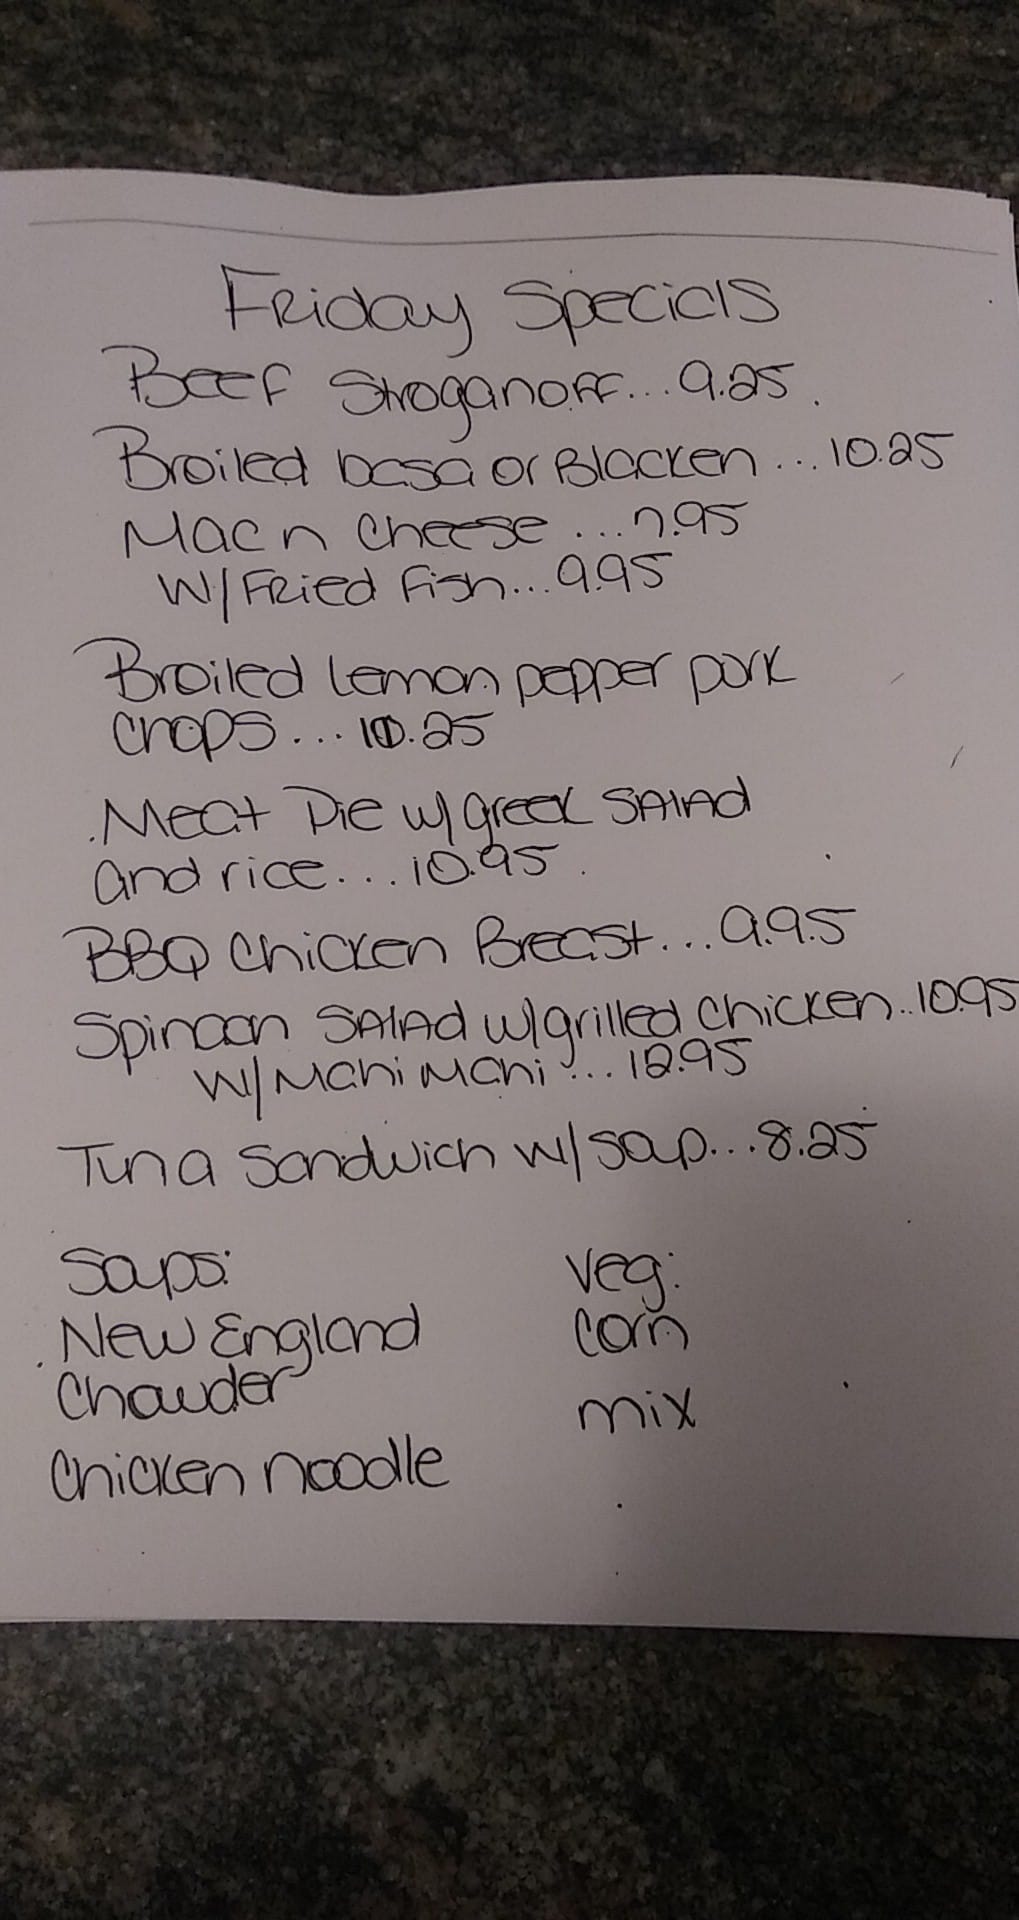 Friday Specials
Beef Stroganoff...9.25
Broiled basa or Blacken...10.25
Mac n Cheese...7.95
W/Fried Fish...9.95
Broiled lemon pepper pork
chops...10.25
Meat Pie w/greek SAlAd
and rice...10.95
BBQ Chicken Breast...9.95
Spinach SAlAd w/grilled chicken..10.95
W/Mahi Mahi...12.95
Tuna Sandwich w/soup...8.25
Soups:
Veg:
New England
Corn
Chowder
mix
Chicken noodle